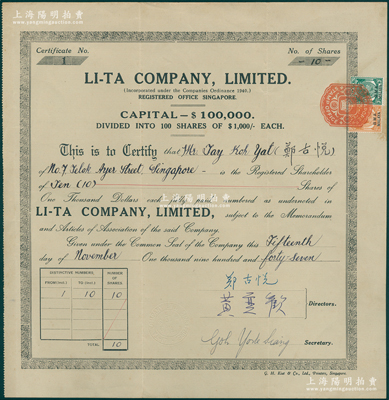 上海阳明拍卖
Certificate No.
No. of Shares
1
- 10 -
LI-TA COMPANY, LIMITED.
(Incorporated under the Companies Ordinance 1940.)
REGISTERED OFFICE SINGAPORE.
CAPITAL — $ 100,000.
DIVIDED INTO 100 SHARES OF $1,000/- EACH.
This is to Certify that Mr. Tay Koh Yat (鄭古悦)
of No. 7 Telok Ayer Street, Singapore - is the Registered Shareholder
of Ten (10) Shares of
One Thousand Dollars each fully paid numbered as undernoted in
LI-TA COMPANY, LIMITED, subject to the Memorandum
and Articles of Association of the said Company.
Given under the Common Seal of the Company this Fifteenth
day of November One thousand nine hundred and forty-seven
DISTINCTIVE NUMBERS NUMBER OF SHARES
FROM (INCL.) TO (INCL.)
1 10 10
TOTAL 10
鄭古悦
Directors.
Secretary.
上海阳明拍卖